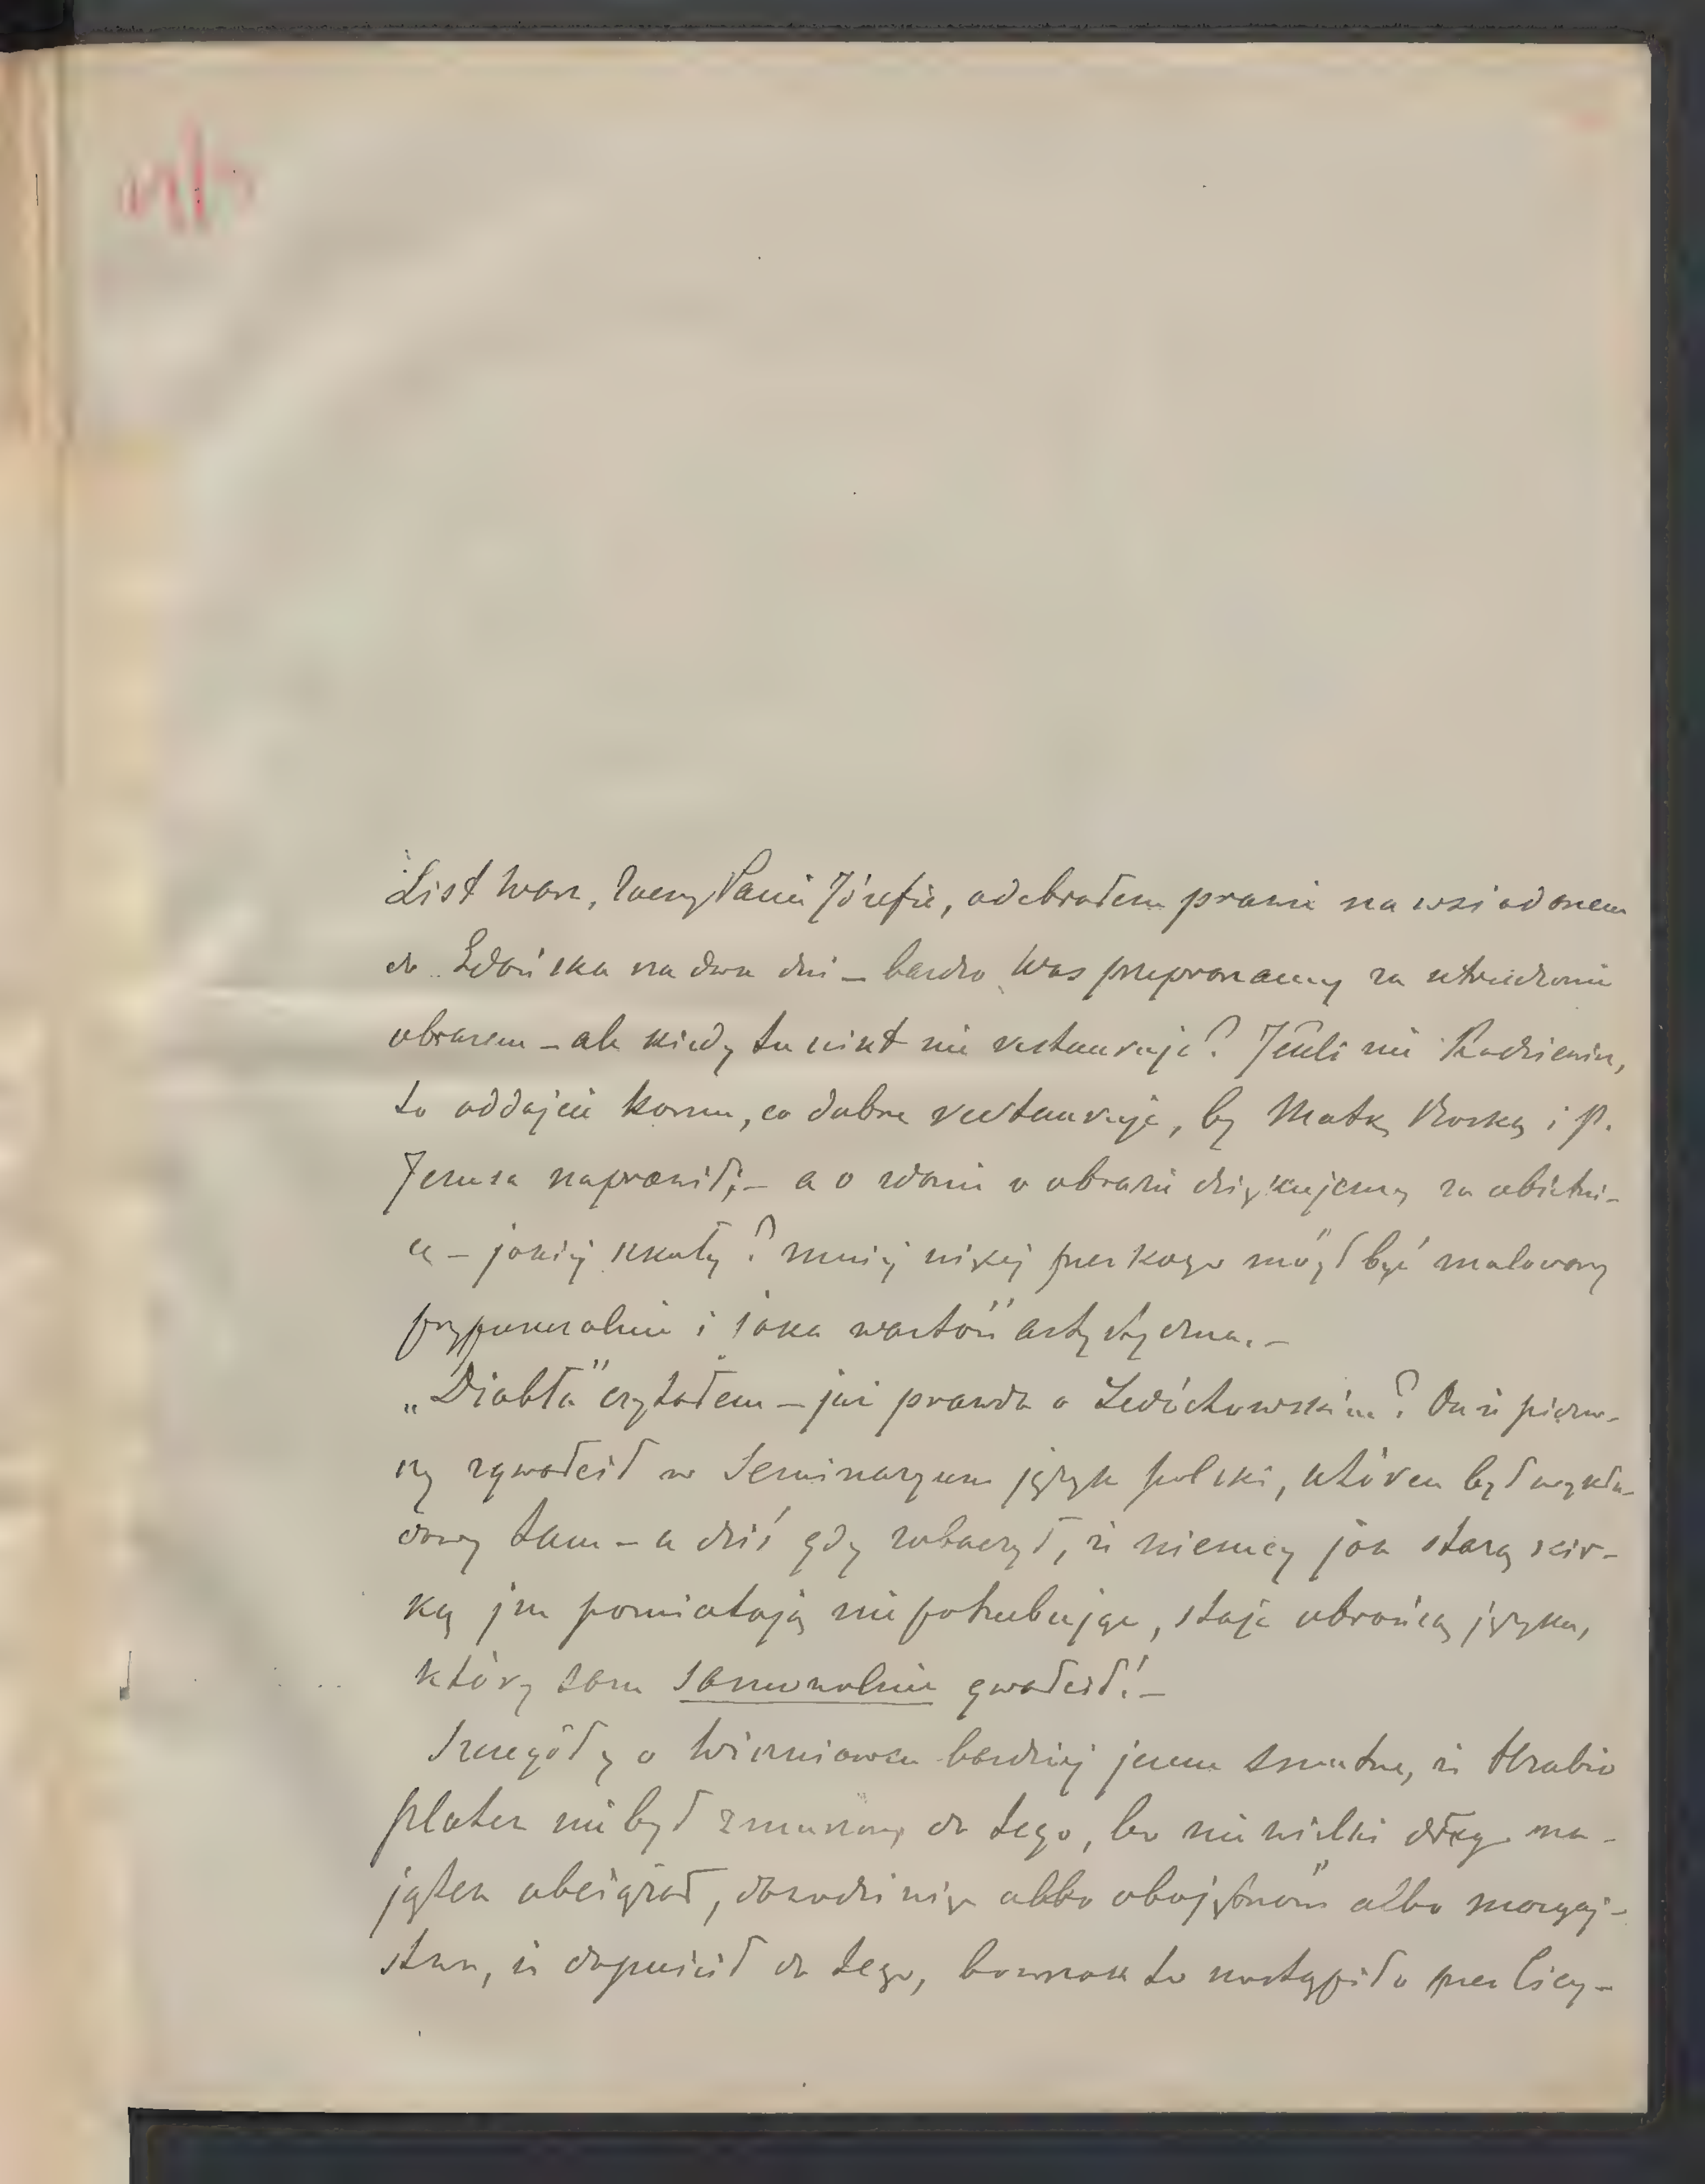 List Wasz, Zacny Panie Józefie, odebrałem prawie na wsiadanem
do Gdańska na dwa dni – bardzo Was przepraszamy za utrudzenie
obrazem – ale kiedy tu nikt nie restauruje? Jeśli nie
to oddajcie komu, co dobrze restauruje, by Matkę Boską i P.
Jezusa naprawił; – a o zdanie o obrazie dziękujemy za obietni-
cę – jakiej szkoły? mniej więcej przez kogo mógł być malowany
przypuszczalnie i jaka wartość artystyczna. –
„Diabła" czytałem – jak prawda o Ledóchowskim? On ci pierw-
szy zgwałcił w Seminaryum język polski, któren był wykła-
dowy tam – a dziś gdy zobaczył, iż niemcy jak starą ścir-
ką jem pomiatają nie potrzebując, staje obrońcą języka,
który sam samowolnie gwałcił! –
Szczegóły o bardziej jeszcze smutne, iż Hrabia
Plater nie był zmuszony do tego, bo nie wielki dług ma-
jątek obciążał, dowodzi więc albo obojętność albo
stwo, iż dopuścił do tego, bo wszak to nastąpiło przez licy-